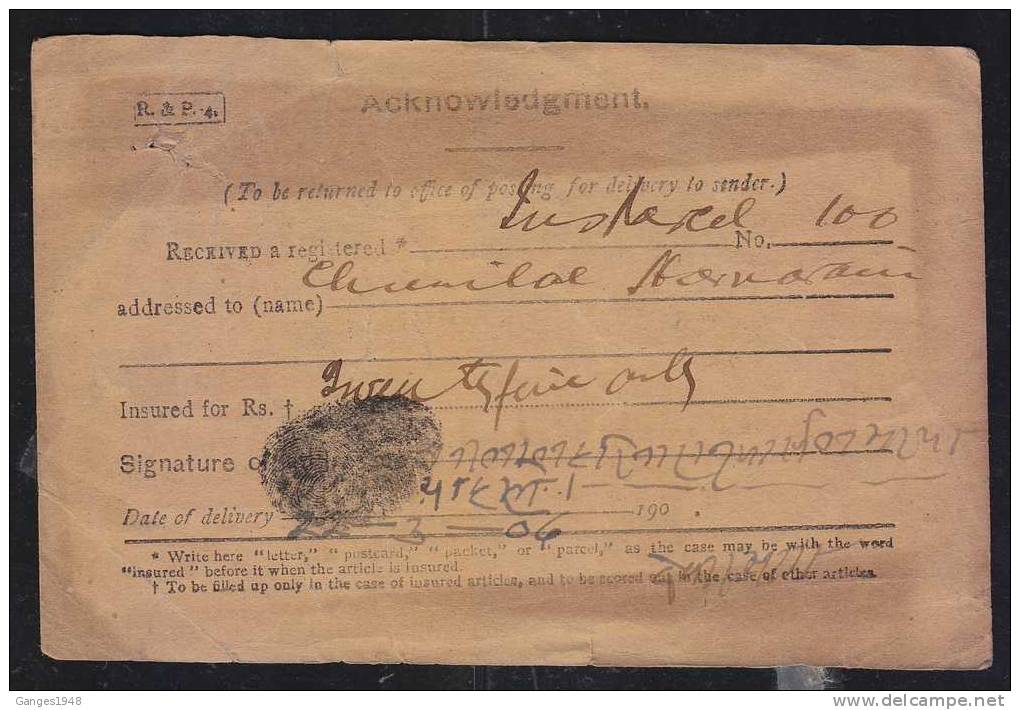 R. & P.-4.
Acknowledgment.
(To be returned to office of posting for delivery to sender.)
RECEIVED a registered * Ins Parcel No. 100
addressed to (name) Chunilal Harnarain
Insured for Rs. † Twenty five only
Signature of
Date of delivery 22-3-06 190
* Write here "letter," "postcard," "packet," or "parcel," as the case may be with the word
"insured" before it when the article is insured.
† To be filled up only in the case of insured articles, and to be scored out in the case of other articles.
Ganges1948
delcampe.net